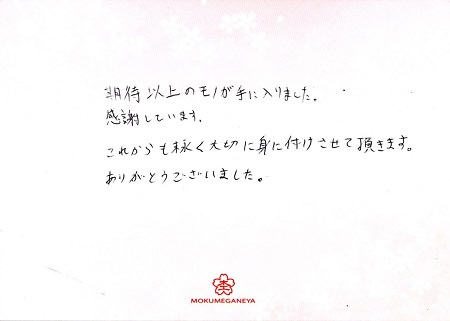 期待以上のモノが手に入りました。
感謝しています。
これからも永く大切に身に付けさせて頂きます。
ありがとうございました。
MOKUMEGANEYA